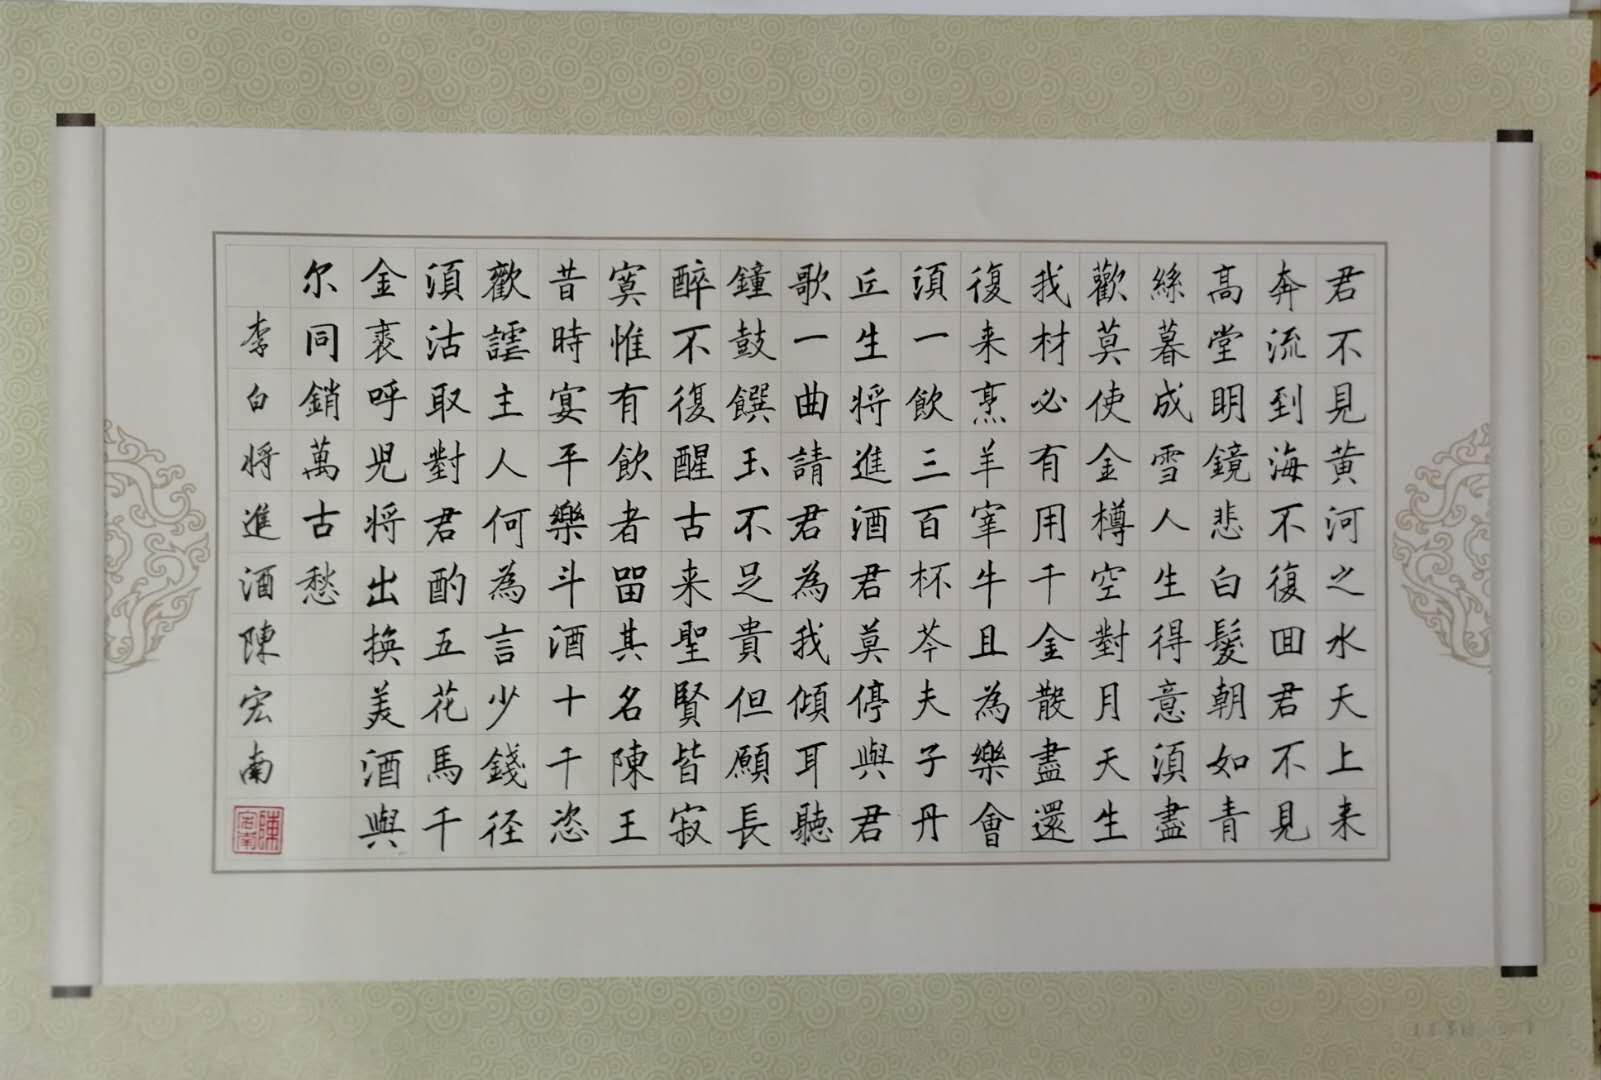 君不見黃河之水天上来
奔流到海不復回君不見
高堂明鏡悲白髮朝如青
絲暮成雪人生得意須盡
歡莫使金樽空對月天生
我材必有用千金散盡還
復来烹羊宰牛且為樂會
須一飲三百杯芩夫子丹
丘生將進酒君莫停與君
歌一曲請君為我傾耳聽
鐘鼓饌玉不足貴但願長
醉不復醒古来聖賢皆寂
寞惟有飲者留其名陳王
昔時宴平樂斗酒十千恣
歡謔主人何為言少錢径
須沽取對君酌五花馬千
金裘呼兒將出換美酒與
尔同銷萬古愁
李白將進酒陳宏南
陳宏南